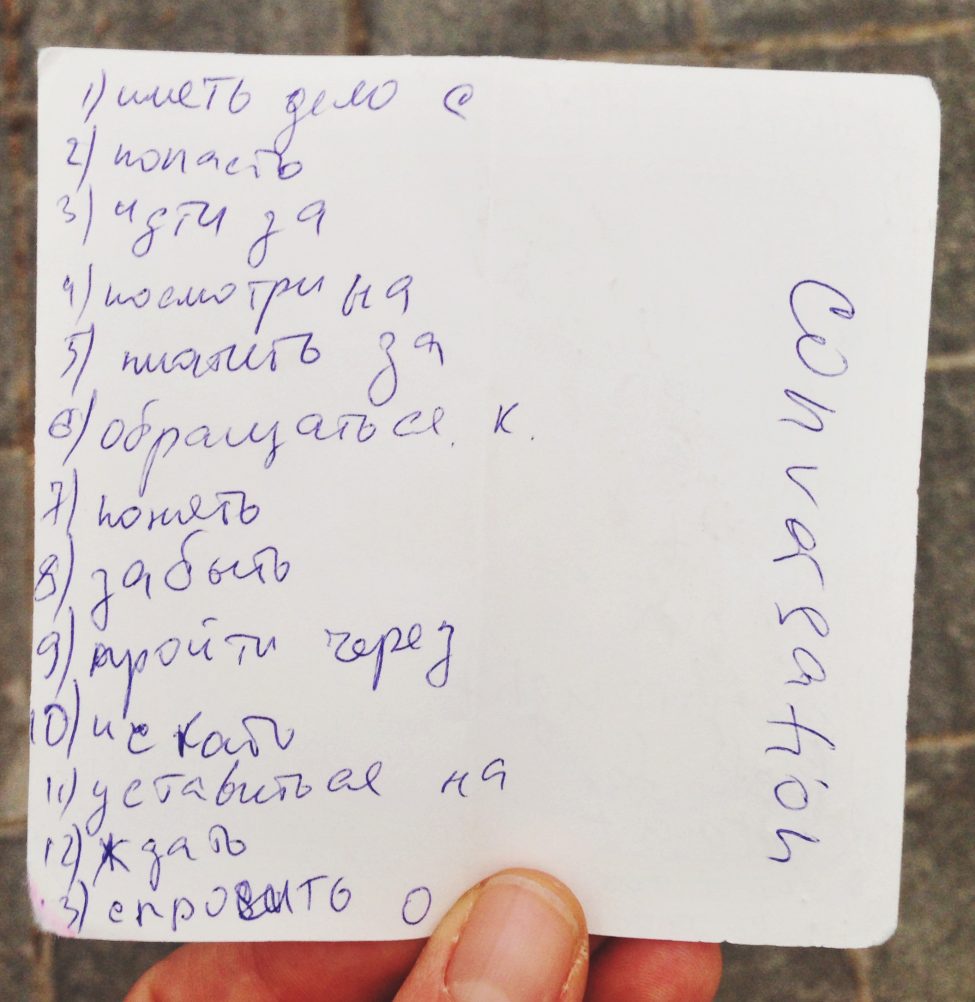 1) иметь дело с
2) попасть
3) идти за
4) посмотри на
5) платить за
6) обращаться. к.
7) понять
8) забыть
9) пройти через
10) искать
11) уставиться на
12) ждать
13) спросить о
Convarsation